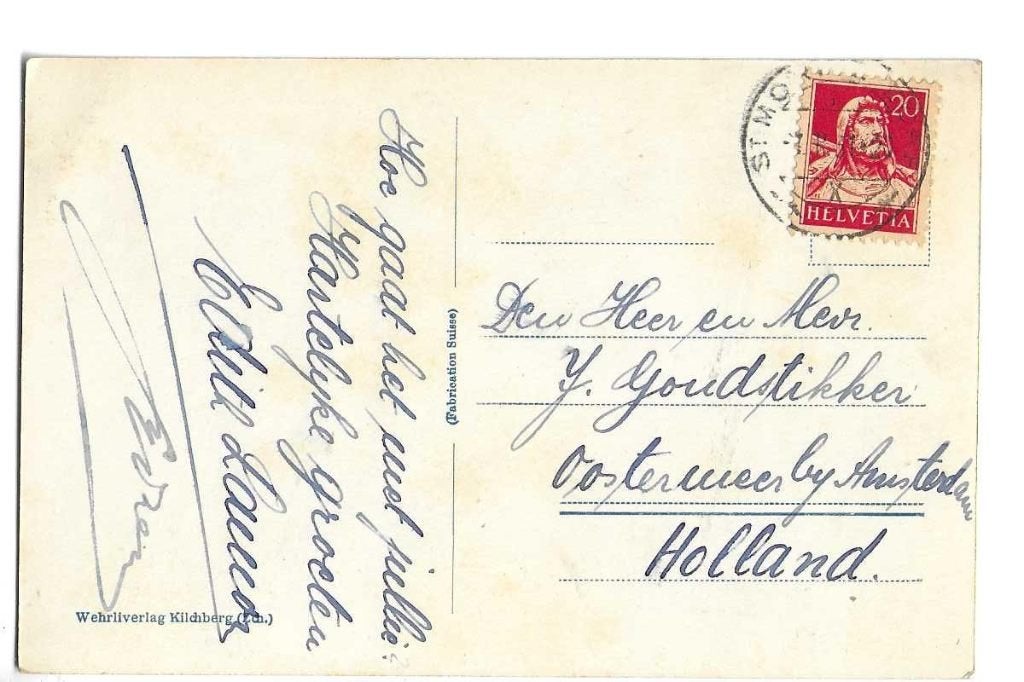 Hoe gaat het met jullie?
Hartelyke groeten
(Fabrication Suisse)
Wehrliverlag Kilchberg (Zch.)
ST. MO
20
HELVETIA
Den Heer en Mevr.
J. Goudstikker
Oostermeer by Amsterdam
Holland.